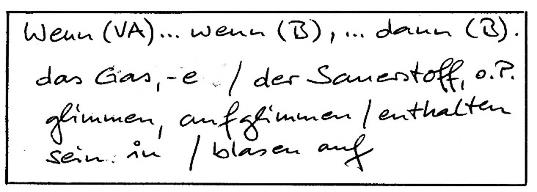 Wenn (VA)... wenn (B), ... dann (B).
das Gas, -e / der Sauerstoff, o.P.
glimmen, aufglimmen / enthalten
sein in / blasen auf